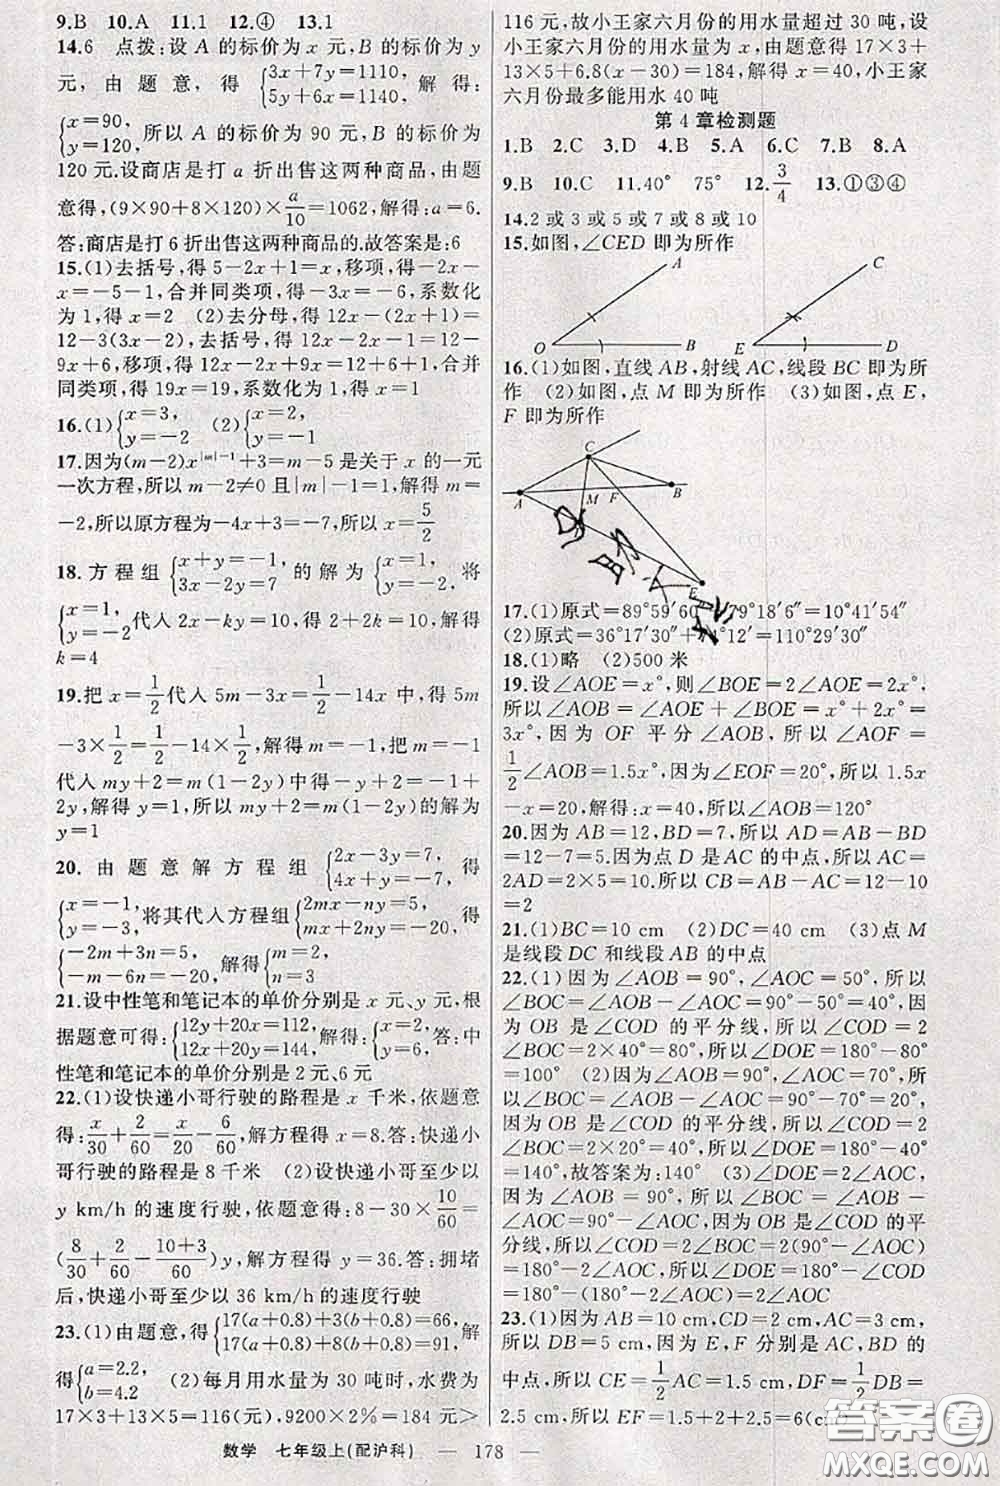 9.B 10.A 11.1 12.④ 13.1
14.6 点拨:设 A 的标价为 x 元,B 的标价为 y
元,由题意,得{3x+7y=1110, 5y+6x=1140,解得:
{x=90, y=120,所以 A 的标价为 90 元,B 的标价为
120 元.设商店是打 a 折出售这两种商品,由题
意得,(9×90+8×120)×a/10=1062,解得:a=6.
答:商店是打 6 折出售这两种商品的.故答案是:6
15.(1)去括号,得 5-2x+1=x,移项,得-2x-
x=-5-1,合并同类项,得-3x=-6,系数化
为 1,得 x=2 (2)去分母,得 12x-(2x+1)=
12-3(3x-2),去括号,得 12x-2x-1=12-
9x+6,移项,得 12x-2x+9x=12+6+1,合并
同类项,得 19x=19,系数化为 1,得 x=1
16.(1){x=3, y=-2 (2){x=2, y=-1
17.因为(m-2)x^{|m|-1}+3=m-5 是关于 x 的一元
一次方程,所以 m-2≠0 且|m|-1=1,解得 m=
-2,所以原方程为-4x+3=-7,所以 x=5/2
18.方程组{x+y=-1, 3x-2y=7 的解为{x=1, y=-2,将
{x=1, y=-2代入 2x-ky=10,得 2+2k=10,解得
k=4
19.把 x=1/2代入 5m-3x=1/2-14x 中,得 5m
-3×1/2=1/2-14×1/2,解得 m=-1,把 m=-1
代入 my+2=m(1-2y)中得-y+2=-1+
2y,解得 y=1,所以 my+2=m(1-2y)的解为
y=1
20.由题意解方程组{2x-3y=7, 4x+y=-7,得
{x=-1, y=-3,将其代入方程组{2mx-ny=5, mx+ny=-20,得
{-2m+3n=5, -m-6n=-20,解得{m=2, n=3
21.设中性笔和笔记本的单价分别是 x 元、y 元,根
据题意可得:{12y+20x=112, 12x+20y=144,解得:{x=2, y=6,答:中
性笔和笔记本的单价分别是 2 元、6 元
22.(1)设快递小哥行驶的路程是 x 千米,依题意
得:x/30+2/60=x/20-6/60,解方程得 x=8.答:快递小
哥行驶的路程是 8 千米 (2)设快递小哥至少以
y km/h 的速度行驶,依题意得:8-30×10/60=
(8/30+2/60-(10+3)/60)y,解方程得 y=36.答:拥堵
后,快递小哥至少以 36 km/h 的速度行驶
23.(1)由题意,得{17(a+0.8)+3(b+0.8)=66, 17(a+0.8)+8(b+0.8)=91,解
得{a=2.2, b=4.2 (2)每月用水量为 30 吨时,水费为
17×3+13×5=116(元),9200×2%=184 元>
116 元,故小王家六月份的用水量超过 30 吨,设
小王家六月份的用水量为 x,由题意得 17×3+
13×5+6.8(x-30)=184,解得 x=40,小王家
六月份最多能用水 40 吨
第 4 章检测题
1.B 2.C 3.D 4.B 5.A 6.C 7.B 8.A
9.B 10.C 11.40° 75° 12.3/4 13.①③④
14.2 或 3 或 5 或 7 或 8 或 10
15.如图,∠CED 即为所作
A C
O B E D
16.(1)如图,直线 AB,射线 AC,线段 BC 即为所
作 (2)如图,点 M 即为所作 (3)如图,点 E,
F 即为所作
C
A M F B
E
17.(1)原式=89°59′60″-79°18′6″=10°41′54″
(2)原式=36°17′30″+74°12′=110°29′30″
18.(1)略 (2)500 米
19.设∠AOE=x°,则∠BOE=2∠AOE=2x°,
所以∠AOB=∠AOE+∠BOE=x°+2x°=
3x°,因为 OF 平分∠AOB,所以∠AOF=
1/2∠AOB=1.5x°,因为∠EOF=20°,所以 1.5x
-x=20,解得:x=40,所以∠AOB=120°
20.因为 AB=12,BD=7,所以 AD=AB-BD
=12-7=5.因为点 D 是 AC 的中点,所以 AC=
2AD=2×5=10.所以 CB=AB-AC=12-10
=2
21.(1)BC=10 cm (2)DC=40 cm (3)点 M
是线段 DC 和线段 AB 的中点
22.(1)因为∠AOB=90°,∠AOC=50°,所以
∠BOC=∠AOB-∠AOC=90°-50°=40°,因
为 OB 是∠COD 的平分线,所以∠COD=2
∠BOC=2×40°=80°,所以∠DOE=180°-80°
=100° (2)因为∠AOB=90°,∠AOC=70°,所
以∠BOC=∠AOB-∠AOC=90°-70°=20°,
因为 OB 是∠COD 的平分线,所以∠COD=2
∠BOC=2×20°=40°,所以∠DOE=180°-40°
=140°,故答案为:140° (3)∠DOE=2∠AOC,
因为∠AOB=90°,所以∠BOC=∠AOB-
∠AOC=90°-∠AOC,因为 OB 是∠COD 的平
分线,所以∠COD=2∠BOC=2(90°-∠AOC)
=180°-2∠AOC,所以∠DOE=180°-∠COD
=180°-(180°-2∠AOC)=2∠AOC
23.(1)因为 AB=10 cm,CD=2 cm,AC=3 cm,
所以 DB=5 cm,因为 E,F 分别是 AC,BD 的
中点,所以 CE=1/2AC=1.5 cm,DF=1/2DB=
2.5 cm,所以 EF=1.5+2+2.5=6(cm)
数学 七年级上(配沪科) — 178 —
答案圈
MXQE.COM